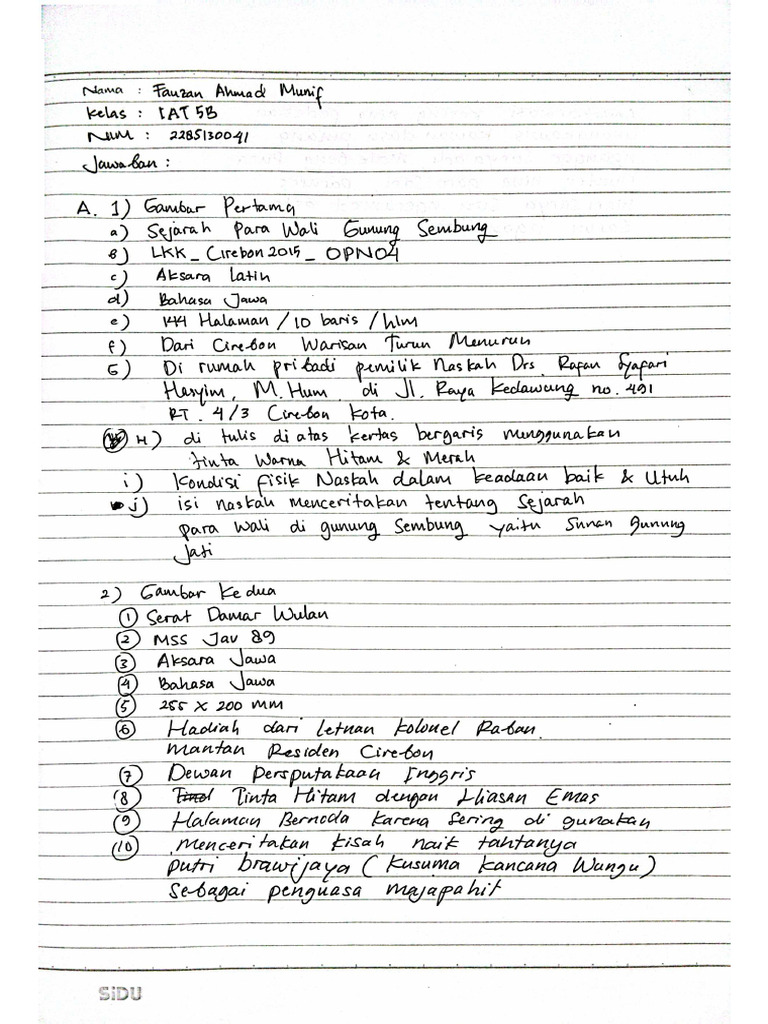 Nama : Fauzan Ahmad Munif
Kelas : IAT 5B
NIM : 2285130041
Jawaban :
A. 1) Gambar Pertama
a) Sejarah Para Wali Gunung Sembung
B) LKK_Cirebon 2015_ OPN04
c) Aksara latin
d) Bahasa Jawa
e) 144 Halaman / 10 baris / hlm
f) Dari Cirebon Warisan Turun Menurun
G) Di rumah pribadi pemilik Naskah Drs. Rafan Syafari
Hasyim, M. Hum. di Jl. Raya Kedawung no. 491
RT. 4/3 Cirebon Kota.
H) di tulis di atas kertas bergaris menggunakan
tinta Warna Hitam & Merah
i) Kondisi fisik Naskah dalam keadaan baik & Utuh
j) isi naskah menceritakan tentang Sejarah
para wali di gunung Sembung yaitu Sunan gunung
Jati
2) Gambar Kedua
1 Serat Damar Wulan
2 MSS Jav 89
3 Aksara Jawa
4 Bahasa Jawa
5 255 X 200 MM
6 Hadiah dari letnan kolonel Raban.
mantan Residen Cirebon
7 Dewan Persputakaan Inggris
8 Tinta Hitam dengan Hiasan Emas
9 Halaman Bernoda karena Sering di gunakan
10 menceritakan kisah naik tahtanya
putri brawijaya ( Kusuma Kancana Wungu )
Sebagai penguasa majapahit
SiDU